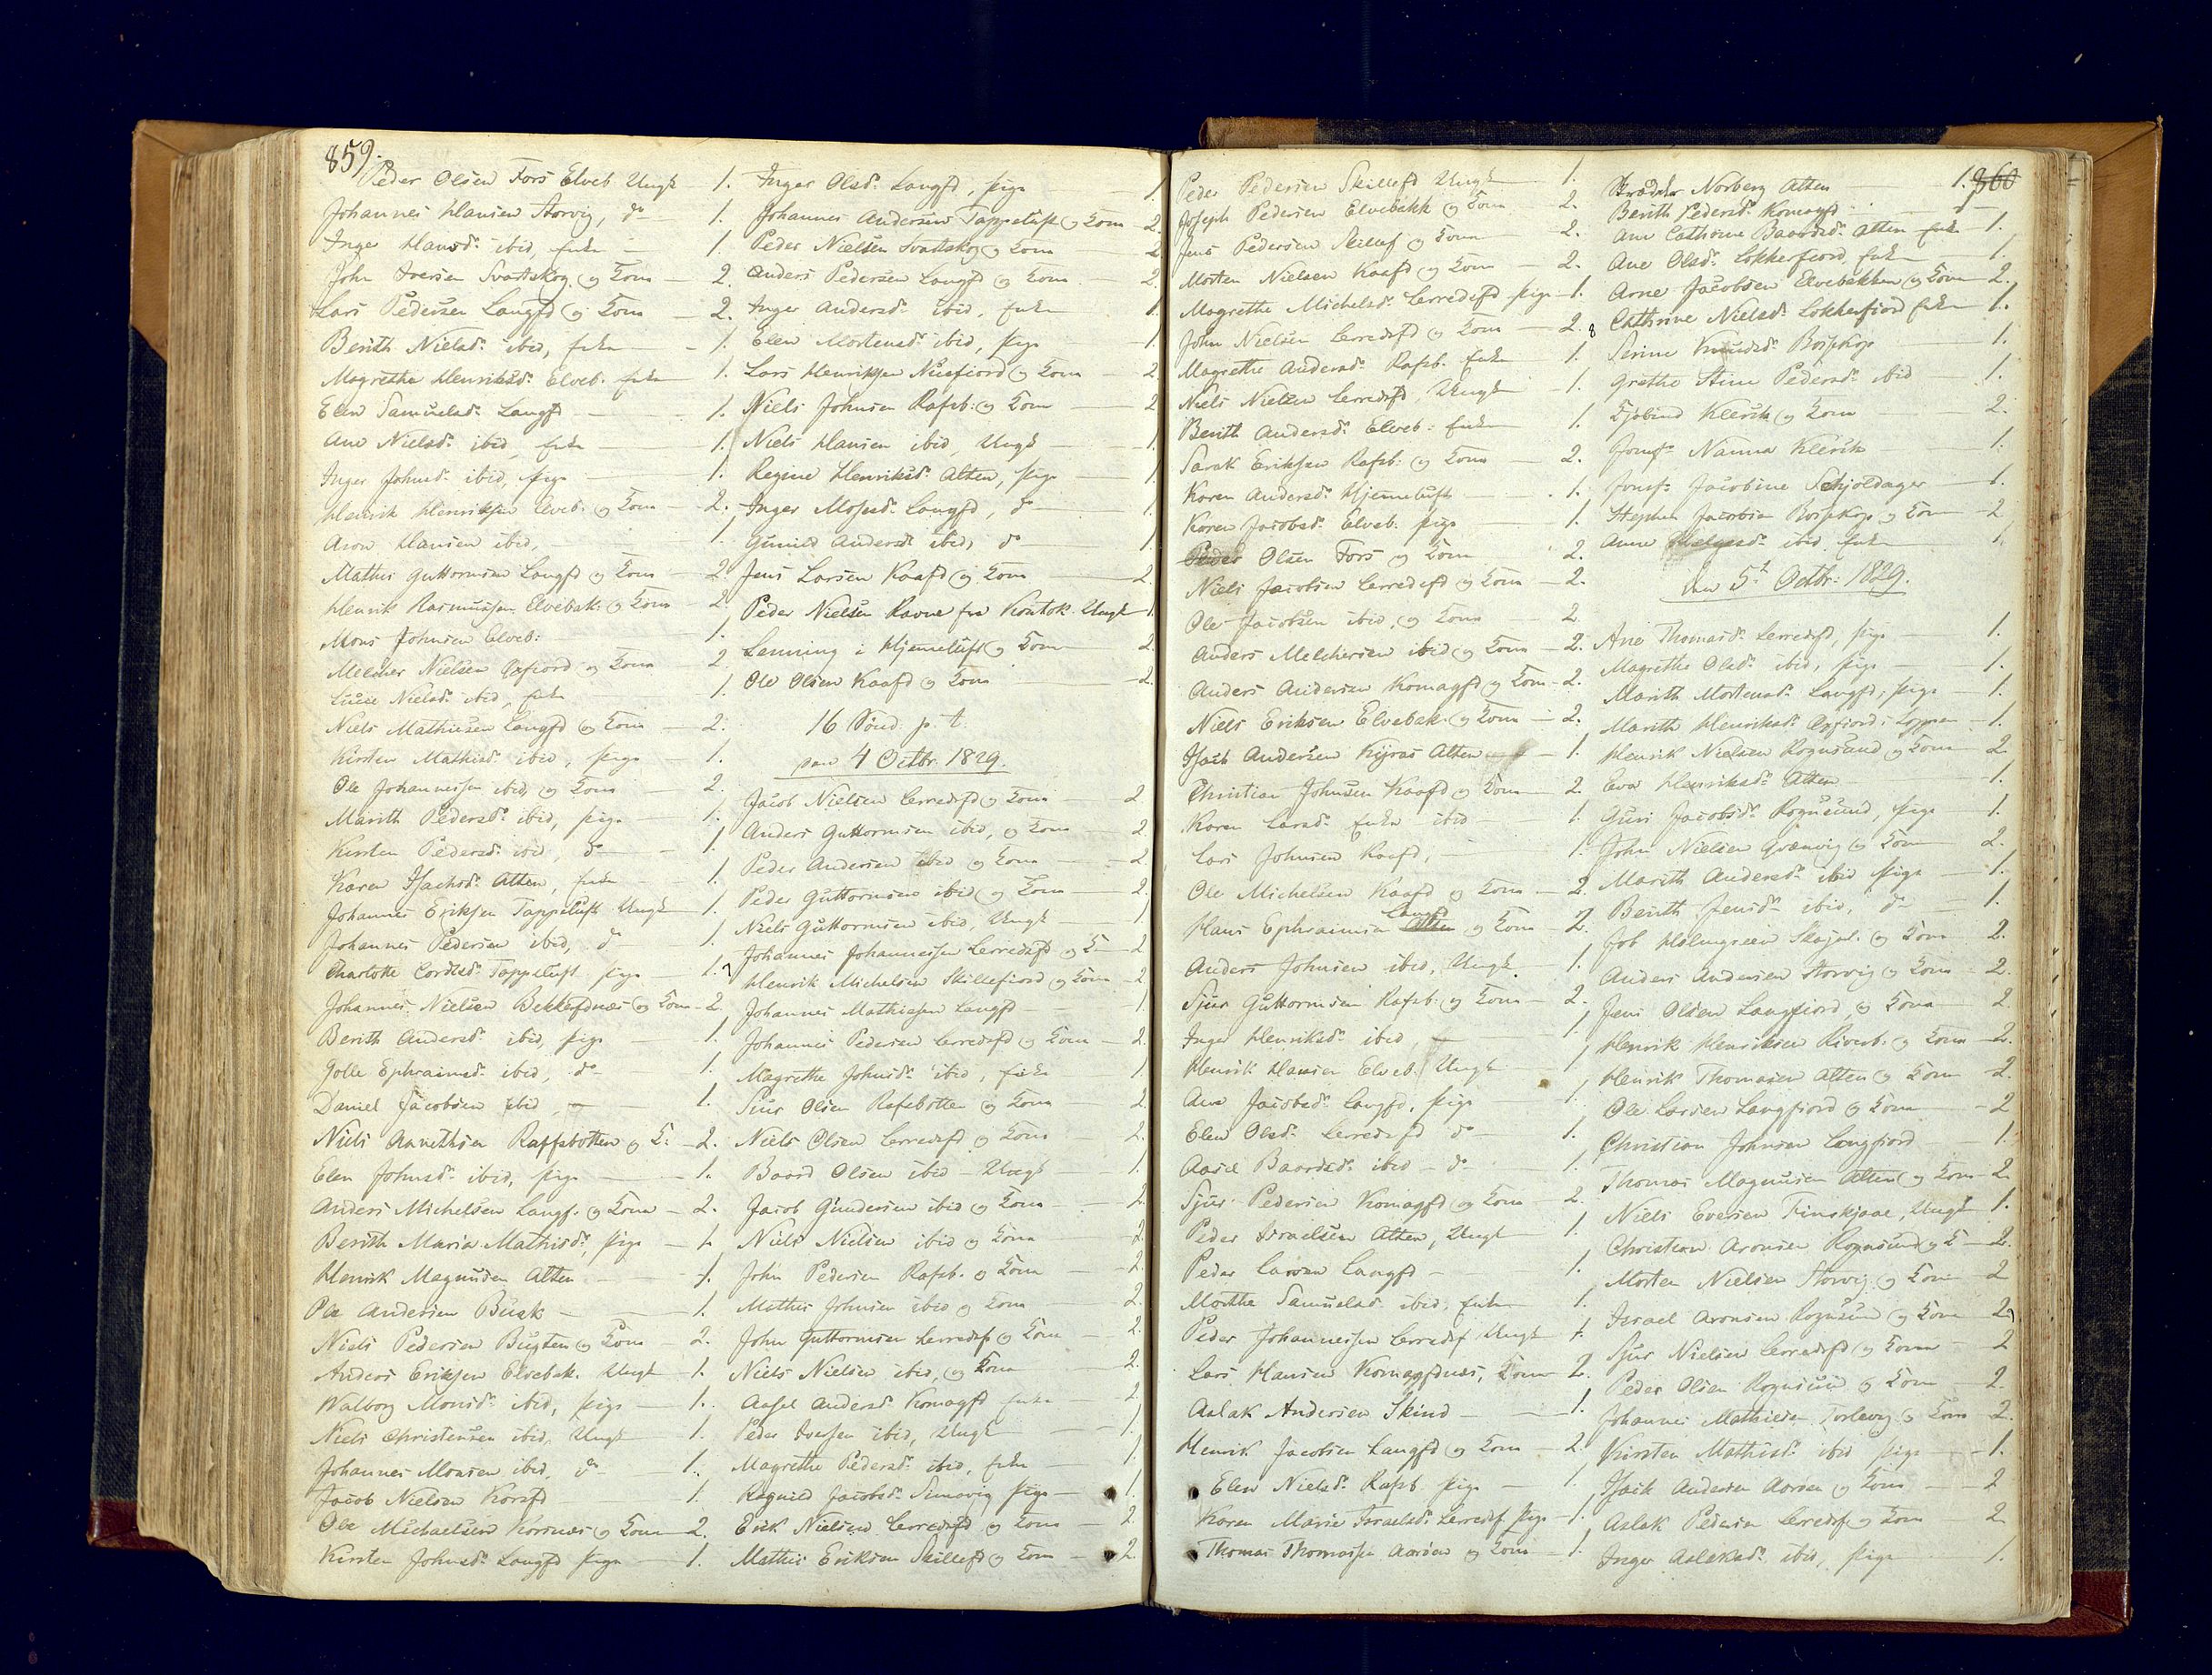 859.
Peder Olsen Fors Elveb Ungk 1.
Johannes Hansen Storvig, do 1.
Inge Hansdr ibid, enke 1.
John Iversen Svartskog og Kone 2.
Lars Pedersen Langfd og Kone 2.
Berith Nielsdr ibid, enke 1.
Magrethe Henriksdr Elveb. enke 1.
Elen Samuelsdr Langfd 1.
Ane Nielsdr ibid, enke 1.
Inger Johnsdr ibid, pige 1.
Henrik Henriksen Elveb. og Kone 2.
Aron Hansen ibid, 1.
Mathis Guttormsen Langfd og Kone 2.
Henrik Rasmussen Elvebak. og Kone 2.
Mons Johnsen Elveb: 1.
Melcher Nielsen og Kone 2
Lucie Nielsdr ibid, enke 1.
Niels Mathiesen Langfd og Kone 2.
Kirsten Mathisdr ibid, pige 1.
Ole Johannessen ibid, og Kone 2.
Marith Pedersdr ibid, pige 1.
Kirsten Pedersdr ibid, do 1.
Karen Isachsdr Alten, enke 1.
Johannes Eriksen Tappeluft Ungk 1.
Johannes Pedersen ibid, do 1.
Charlotte Tappeluft pige 1.
Johannes Nielsen Bekkefdnæs og Kone 2.
Berith Andersdr ibid, pige 1.
Golle Ephraimsdr ibid, do 1.
Daniel Jacobsen ibid 1.
Niels Raffsbotten og K. 2.
Elen Johnsdr ibid, pige 1.
Anders Michelsen Langf. og Kone 2.
Berith Maria Mathisdr, pige 1.
Henrik Magnusen Alten 1.
Andersen Busk 1.
Niels Pedersen Bugten og Kone 2.
Anders Eriksen Elvebak. Ungk 1.
Walborg Monsdr ibid, pige 1.
Niels Christensen ibid, Ungk 1.
Johannes Monsen ibid, do 1.
Jacob Nielsen Korsfd 1.
Ole Michaelsen Korsnæs og Kone 2.
Kirsten Johnsdr Langfd pige 1.
Inger Olsdr Langfd, pige 1
Johannes Andersen Tappeluft og Kone 2.
Peder Nielsen Svartskog og Kone 2
Anders Pedersen Langfd og Kone 2.
Inger Andersdr ibid, enke 1.
Elen Mortensdr ibid, pige 1
Lars Henriksen Nuvsfiord og Kone 2
Niels Johnsen Rafsb: og Kone 2
Niels Hansen ibid, Ungk 1.
Regine Henriksdr Alten, pige 1.
Inger Mosesdr Langfd, do 1.
Gunild Andersdr ibid, do 1.
Jens Larsen Kaafd og Kone 2.
Peder Nielsen Ravne fra Kautok. Ungk 1.
Lemning i Hjemmeluft og Kone 2.
Ole Olsen Kaafd og Kone 2.
16 Sønd. p. t.
den 4 Octbr. 1829.
Jacob Nielsen Lerredsfd og Kone 2
Anders Guttormsen ibid, og Kone 2.
Peder Andersen ibid og Kone 2.
Peder Guttormsen ibid og Kone 2.
Niels Guttormsen ibid, Ungk 1
Johannes Johannessen Lerredsfd og K 2
Henrik Michelsen Skillefiord og Kone 2
Johannes Mathiesen Langfd 1
Johannes Pedersen Lerredsfd og Kone 2.
Magrethe Johnsdr ibid, enke 1
Siur Olsen Rafsbotten og Kone 2.
Niels Olsen Lerredsfd og Kone 2.
Baard Olsen ibid Ungk 1
Jacob Gundersen ibid og Kone 2.
Niels Nielsen ibid og Kone 2
John Pedersen Rafsb. og Kone 2.
Mathis Johnsen ibid og Kone 2.
John Guttormsen Lerredsf og Kone 2.
Niels Nielsen ibid, og Kone 2.
Aasel Andersdr Komagfd enke 2
Peder Iversen ibid, Ungk 1.
Magrethe Pedersdr ibid, enke 1.
Ragnild Jacobsdr Simavig pige 1.
Erik Nielsen Lerredsfd og Kone 2.
Mathis Eriksen Skillefd og Kone 2.
Peder Pedersen Skillefd Ungk 1.
Joseph Pedersen Elvebakk og Kone 2.
Jens Pedersen Skillef og Kone 2.
Morten Nielsen Kaafd og Kone 2.
Magrethe Michelsdr Lerredsfd pige 1.
John Nielsen Lerredsfd og Kone 2.
Magrethe Andersdr Rafsb. enke 1.
Niels Nielsen Lerredsfd, Ungk 1.
Berith Andersdr Elveb: enke 1.
Sarak Eriksen Rafsb: og Kone 2.
Karen Andersdr Hjemmeluft 1.
Karen Jacobsdr Elveb. pige 1.
Peder Olsen Fors og Kone 2.
Niels Jacobsen Lerredsfd og Kone 2.
Ole Jacobsen ibid, og Kone 2.
Anders Melchersen ibid og Kone 2.
Anders Andersen Komagfd og Kone 2.
Niels Eriksen Elvebak. og Kone 2.
Isach Andersen Kyras Alten 1.
Christian Johnsen Kaafd og Kone 2.
Karen Larsdr enke ibid 1.
Lars Johnsen Kaafd, 1.
Ole Michelsen Kaafd og Kone 2.
Hans Ephraimsen Alten Langfd og Kone 2.
Anders Johnsen ibid, Ungk. 1.
Sjur Guttormsen Rafsb. og Kone 2.
Inger Henriksdr ibid, 1
Henrik Hansen Elveb. Ungk 1
Ane Jacobsdr Langfd, pige 1.
Elen Olsdr Lerredsfd do 1.
Aasel Baardsdr ibid do 1.
Sjur Pedersen Komagfd og Kone 2.
Peder Israelsen Alten, Ungk 1.
Peder Larsen Langfd 1.
Marthe Samuelsdr ibid, enke 1.
Peder Johannessen Lerredsf Ungk 1.
Lars Hansen Komagfdnæs, Kone 2.
Aslak Andersen Skind 1.
Henrik Jacobsen Langfd og Kone 2.
Elen Nielsdr Rafsb. pige 1.
Karen Marie Israelsdr Lerredsf pige 1.
Thomas Thomassen Aarøen og Kone 1.
860
Norberg Alten 1.
Berith Pedersdr Komagfd 1
Ane Cathrine Baardsdr Alten enke 1.
Ane Olsdr Lokkerfiord, enke 1.
Arne Jacobsen Elvebakken og Kone 2.
Cathrine Nielsdr Lokkerfiord enke 1.
Serine Knudsdr Bosekop 1.
Grethe Stine Pedersdr ibid 1.
Klerck og Kone 2.
Jomfr Nanna Klerck 1.
Jomfr Jacobine Schjoldager 1.
Stephen Jacobsen Bosekop og Kone 2
Anne ibid. enke 1.
den 5t Octbr: 1829.
Ane Thomasdr Lerredsfd, pige 1.
Magrethe Olsdr ibid, pige 1.
Marith Mortensdr Langfd, pige 1.
Marith Henriksdr Loppen 1.
Henrik Nielsen Rognsund og Kone 2
Eva Henriksdr Alten 1.
Guri Jacobsdr Rognsund, pige 1.
John Nielsen Qvænvig og Kone 2.
Marith Andersdr ibid pige 1.
Berith Jensdr ibid, do 1.
Job Holmgreen Skojal. og Kone 2.
Anders Andersen Storvig og Kone 2.
Jens Olsen Langfiord, og Kone 2
Henrik Henriksen Riverb. og Kone 2.
Henrik Thomasen Alten og Kone 2.
Ole Larsen Langfiord og Kone 2
Christian Johnsen Langfiord 1.
Thomas Magnusen Alten og Kone 2.
Niels Eversen Finskjaae, Ungk 1.
Christian Aronsen Rognsund og K 2.
Morten Nielsen Storvig og Kone 2
Israel Aronsen Rognsund og Kone 2
Sjur Nielsen Lerredsfd og Kone 2
Peder Olsen Rognsund og Kone 2.
Johannes Mathiesen Torlevig og Kone 2.
Kirsten Mathisdr ibid pige 1.
Isach Andersen Aarøen og Kone 2
Aslak Pedersen Lerredsf og Kone 2
Inger Aslaksdr ibid, pige 1.